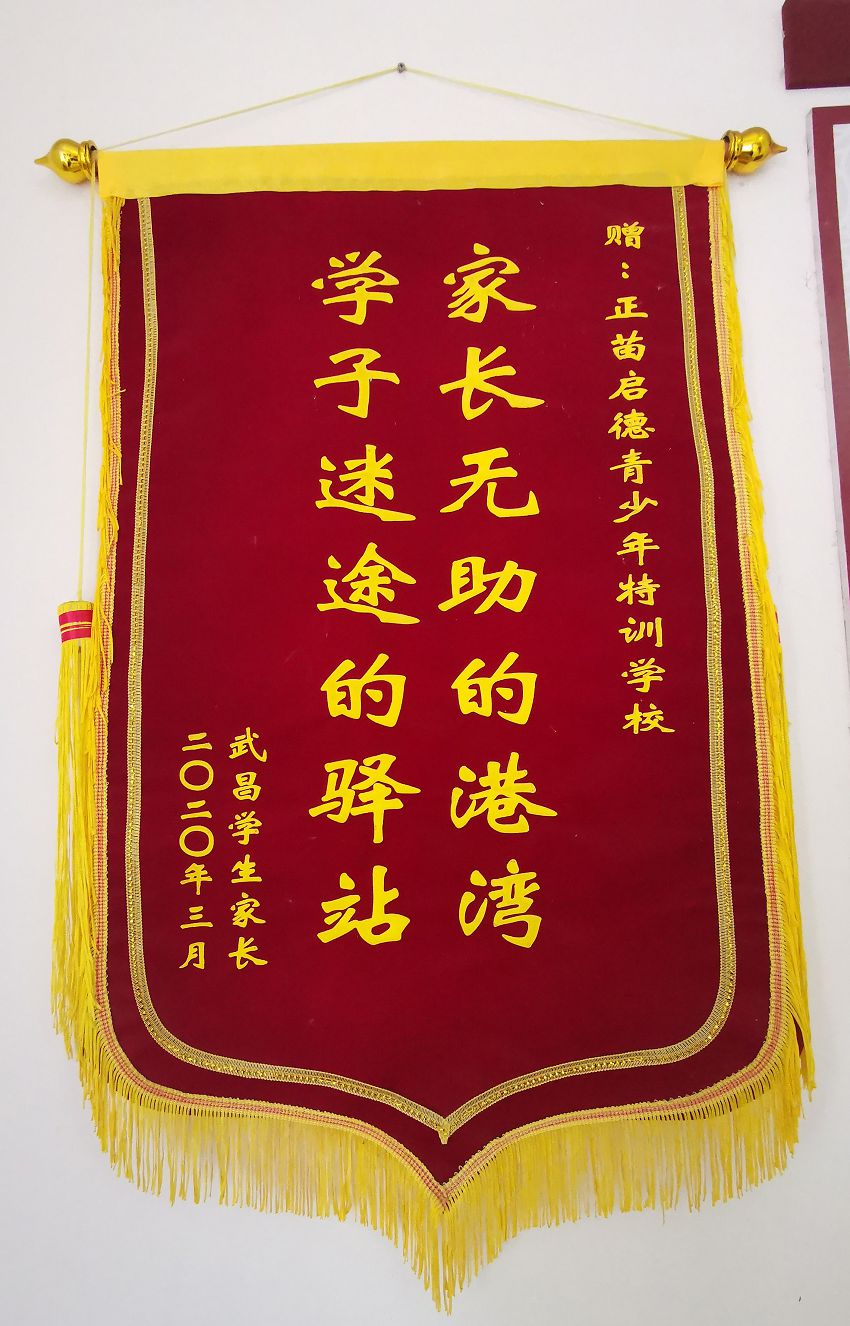 赠：正苗启德青少年特训学校
家长无助的港湾
学子迷途的驿站
武昌学生家长
二〇二〇年三月